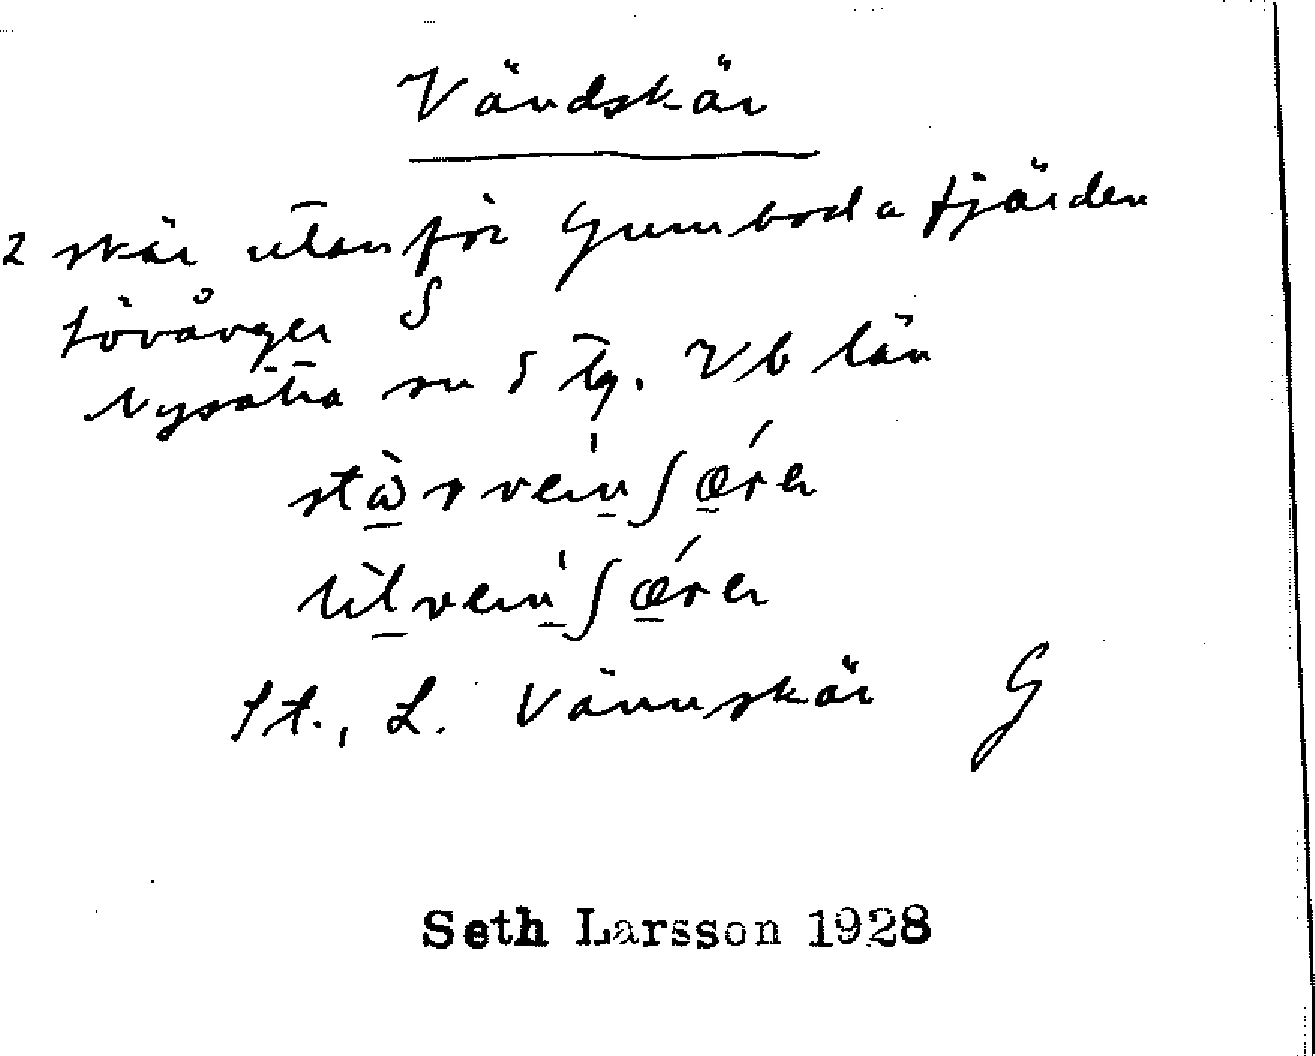 Vändskär
2 skär utanför Gumboda fjärden
Lövånger S
Nysätra sn S tg. Vb län
St., L. Vännskär G
Seth Larsson 1928